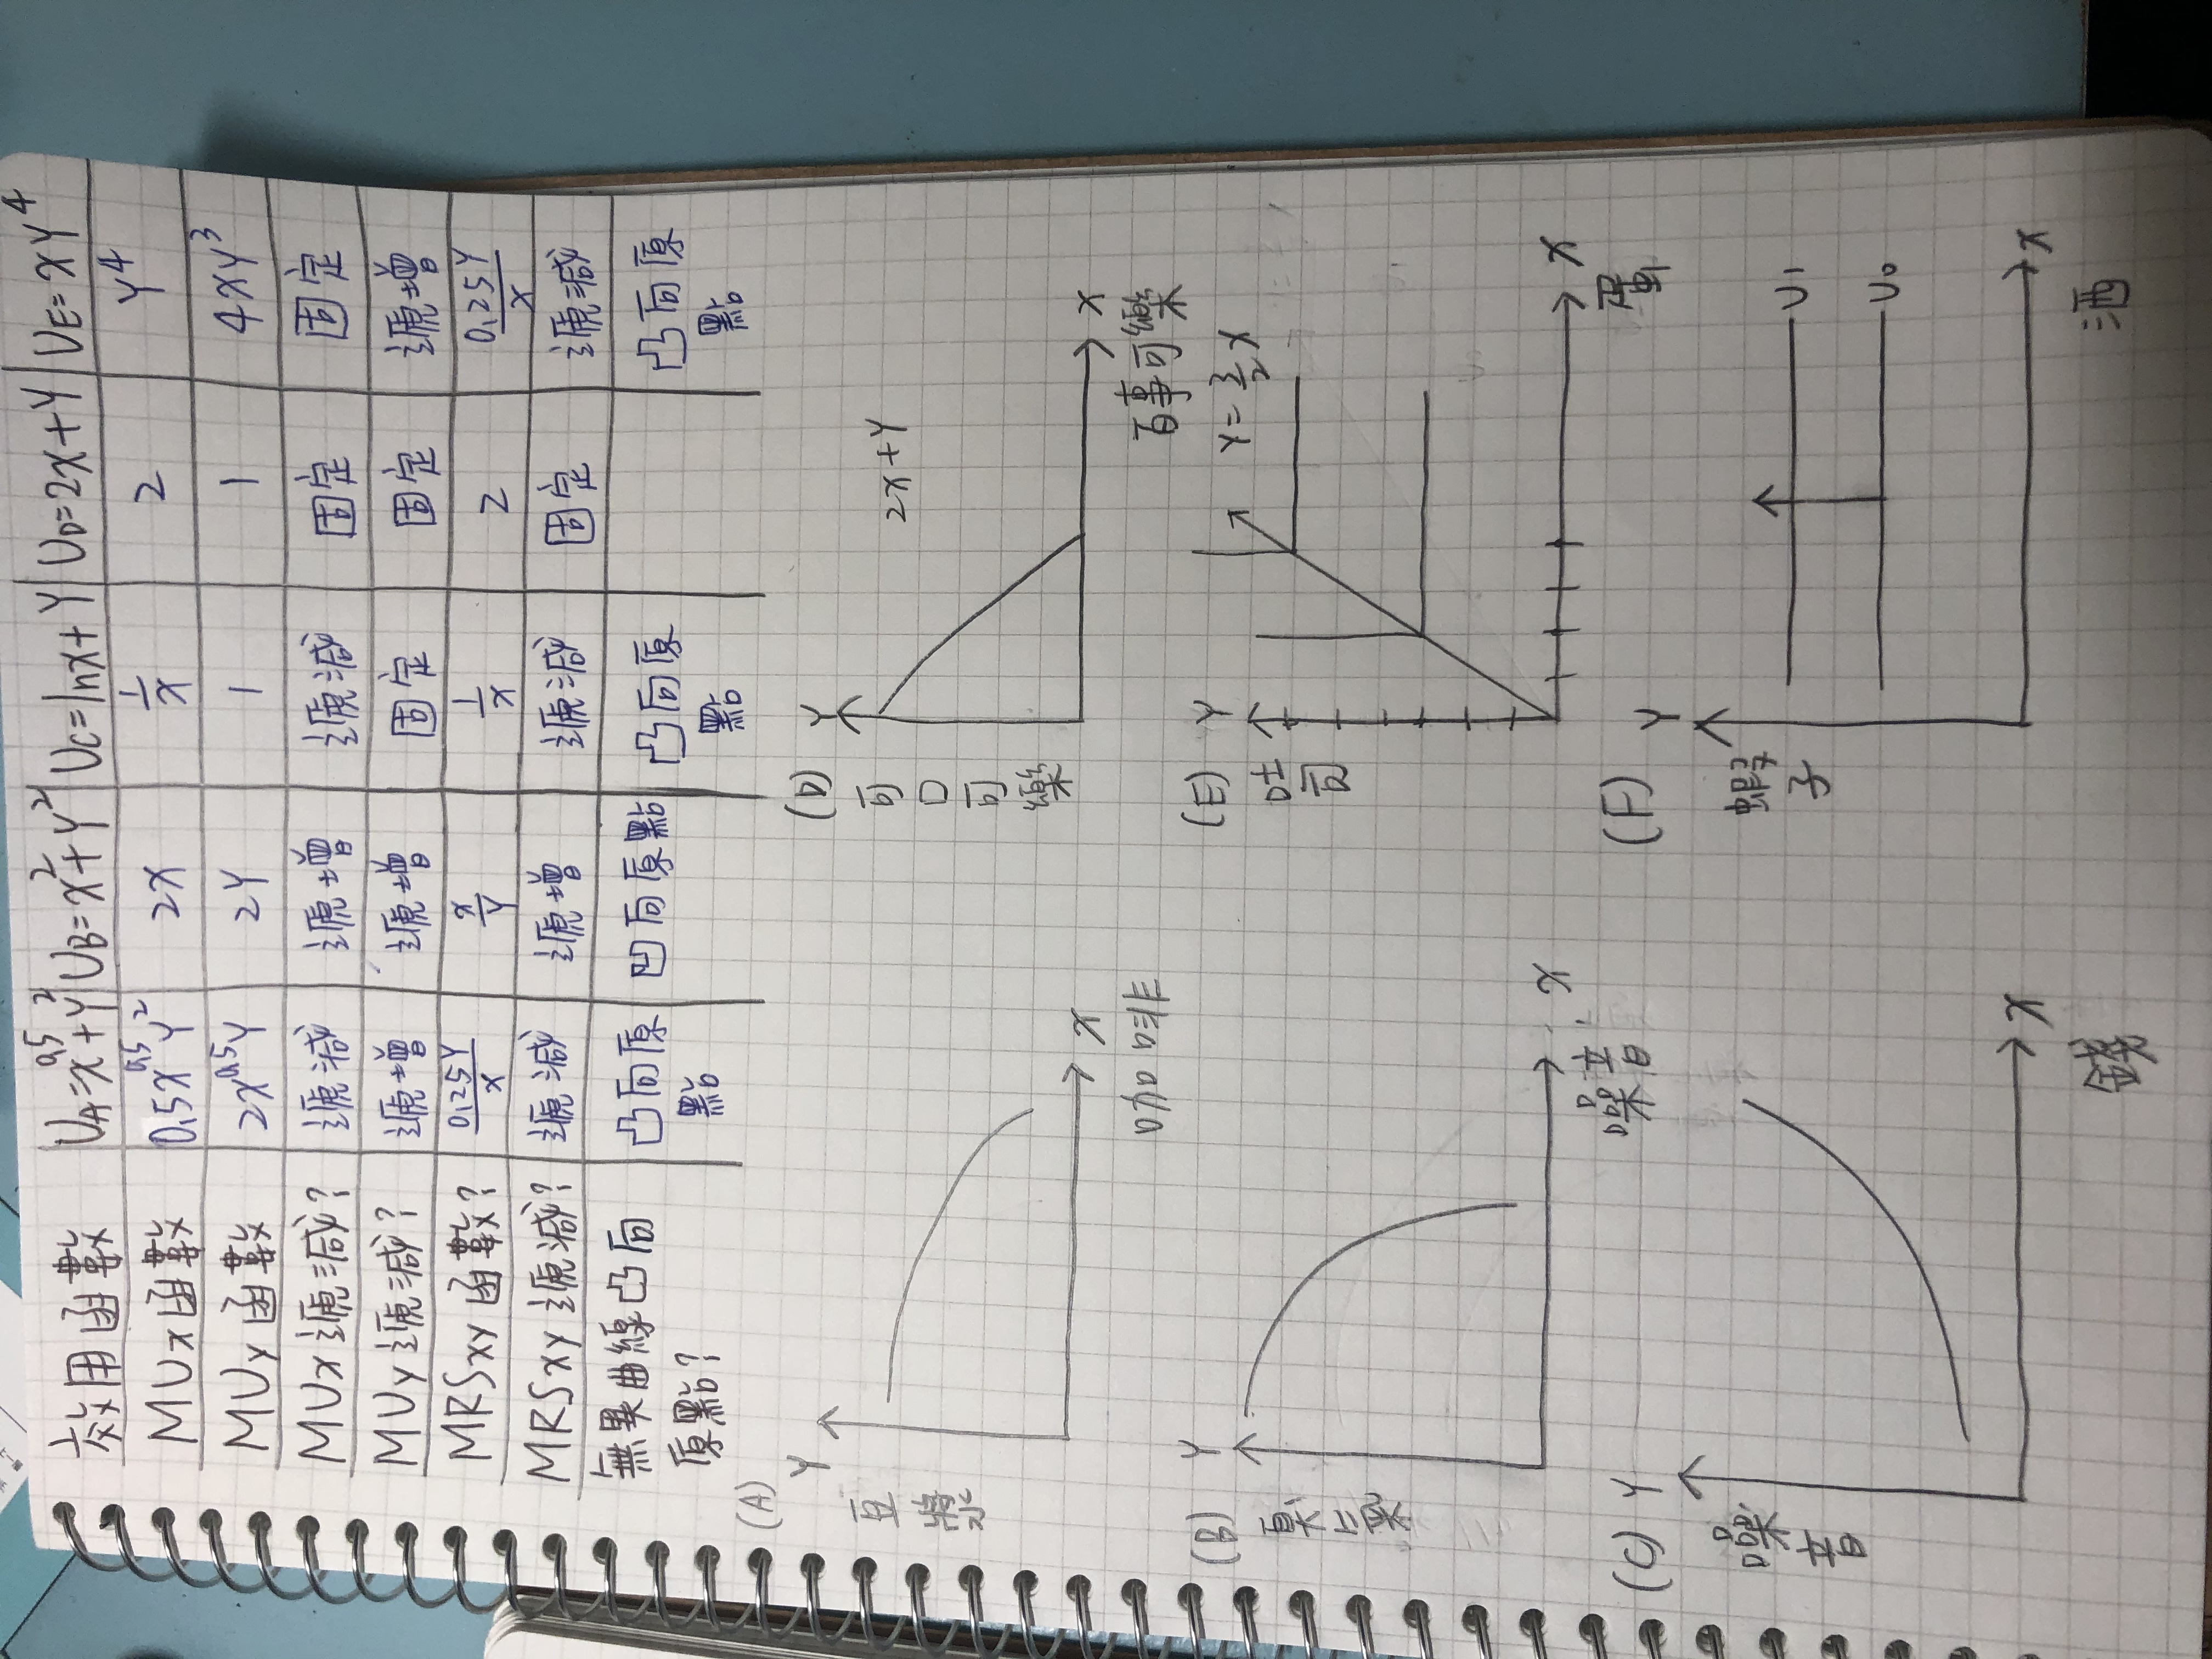 效用函數 UA=x^0.5+Y^2 UB=x^2+Y^2 UC=lnx+Y UD=2x+Y UE=xY^4
MUx函數 0.5x^0.5Y^2 2x 1/x 2 Y^4
MUy函數 2x^0.5Y 2Y 1 1 4xY^3
MUx遞減? 遞減 遞增 遞減 固定 固定
MUy遞減? 遞增 遞增 固定 固定 遞增
MRSxy函數? 0.25Y/x x/Y 1/x 2 0.25Y/x
MRSxy遞減? 遞減 遞增 遞減 固定 遞減
無異曲線凸向原點? 凸向原點 凹向原點 凸向原點 凸向原點
(A)
Y
豆漿
x
咖啡
(D)
Y
可口可樂
2x+Y
x
百事可樂
(B)
Y
臭氣
x
噪音
(E)
Y
吐司
Y=3/2x
x
蛋
(C) Y
噪音
x
錢
(F)
Y
蝦子
U1
U0
x
酒